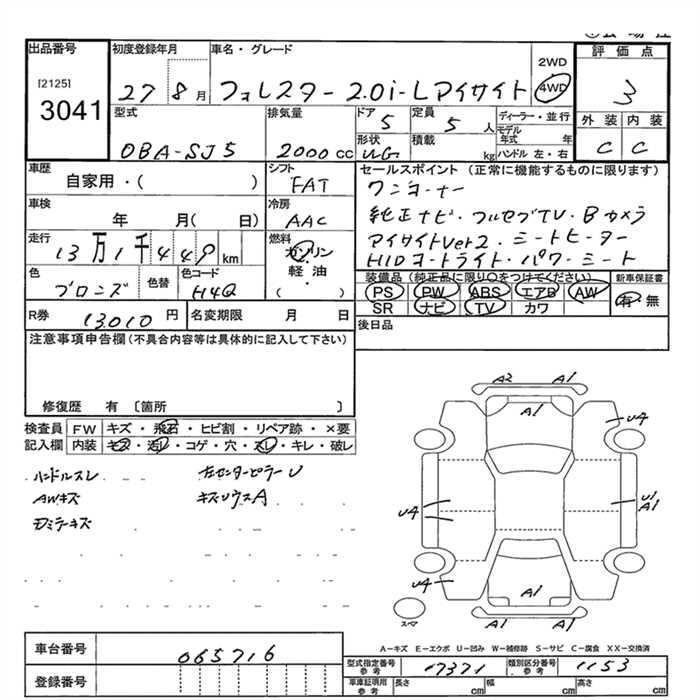 出品番号
[2125]
3041
初度登録年月
27 8月
車名・グレード
フォレスター 2.0i-Lアイサイト
2WD
4WD
評価点
3
外装 内装
C C
型式
DBA-SJ5
排気量
2000cc
ドア
5
定員
5人
ディーラー・並行
モデル年式 年
形状
WG
積載 kg
ハンドル 左・右
車歴
自家用・( )
シフト
FAT
車検
年 月( 日)
冷房
AAC
走行
13万1千449km
燃料
ガソリン・軽油・( )
色
ブロンズ
色替
色コード
H4Q
R券
13010円
名変期限 月 日
セールスポイント (正常に機能するものに限ります)
ワンオーナー
純正ナビ・フルセグTV・Bカメラ
アイサイトVer2・シートヒーター
HIDコートライト・パワーシート
装備品(純正品に限り○をつけてください)
新車保証書
PS PW ABS エアB AW
有・無
SR ナビ TV カワ
後日品
注意事項申告欄(不具合内容等は具体的に記入して下さい)
修復歴 有〔箇所 〕
検査員記入欄
FW キズ・飛石・ヒビ割・リペア跡・×要
内装 キズ・汚レ・コゲ・穴・スレ・キレ・破レ
ハンドルスレ
AWキズ
左センターピラーU
キズソウスA
A2 A1
A1
U4
U4
U1
A1
U4
A1
A1 A1
スペア
A-キズ E-エクボ U-凹み W-補修跡 S-サビ C-腐食 XX-交換済
車台番号
065716
登録番号
型式指定番号 参考
17371
類別区分番号 参考
1153
車庫証明用 参考
長さ cm
幅 cm
高さ cm